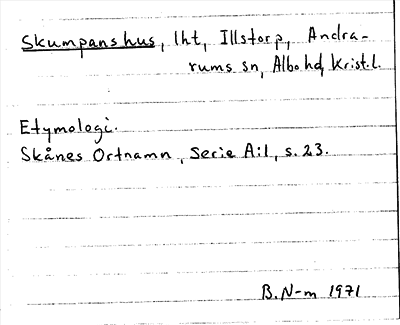 Skumpanshus, lht, Illstorp, Andra-
rums sn, Albo hd, Krist.l.
Etymologi.
Skånes Ortnamn, Serie A:1, s. 23.
B. N-m 1971